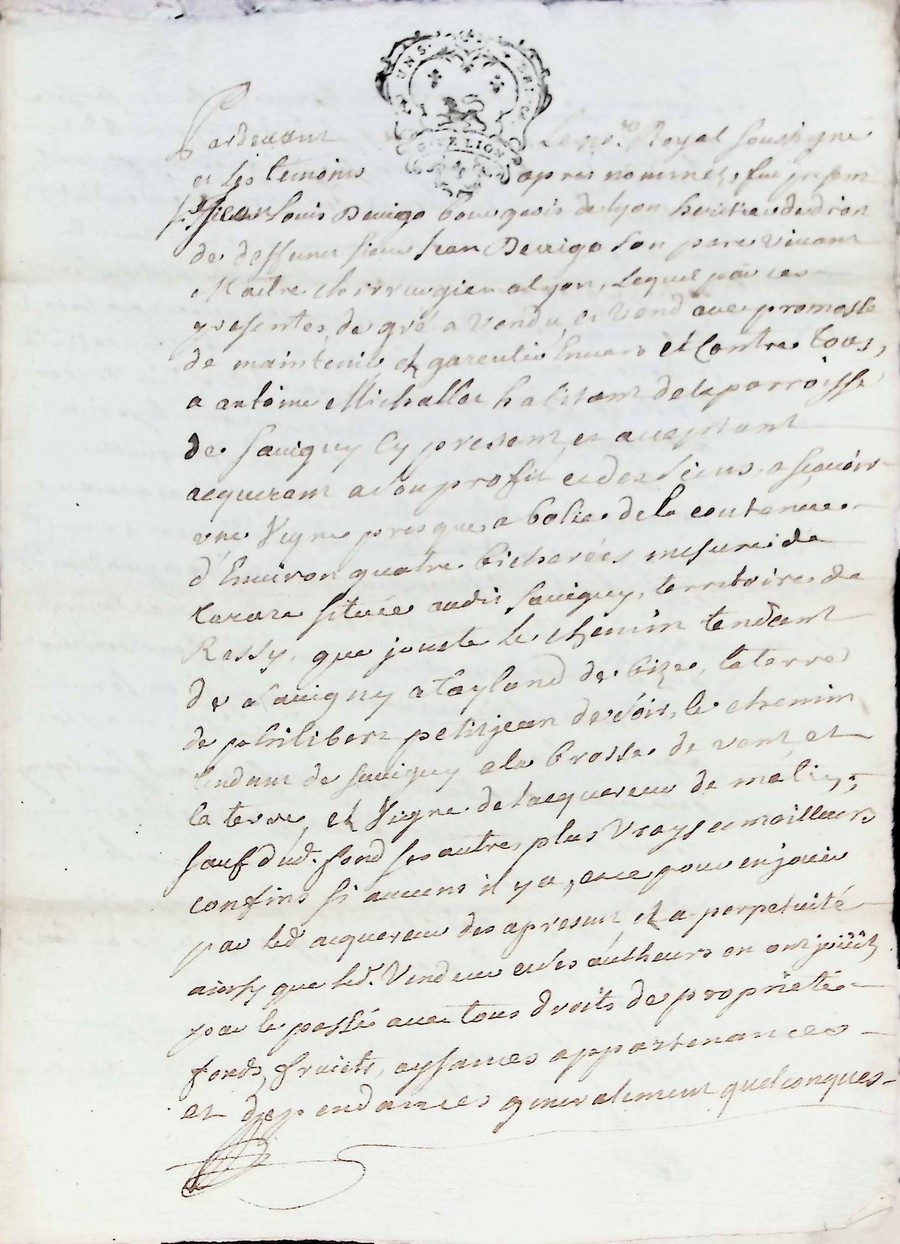 UN S. DE
G. DE LION
Pardevant Le no.re Royal soussigné
et les temoins apres nommez, fut present
s.r Jean Louis Devigo bourgeois de lyon heritier de droit
de deffunt sieur Jean Devigo son pere vivant
Maitre chirurgien a lyon, Lequel par ces
presentes, de gré a vendu, et vend avec promesse
de maintenir, et garentir Envers et Contre tous,
a antoine Michallot habitant de la parroisse
de Savigny Cy present, et acceptant
acquerant a son profit et des siens, a sçavoir
une Vigne presque abolie de la contenue
d'Environ quatre bicherées mesure de
tarare située audit Savigny, territoire de
Ressy, que jouste le chemin tendant
de Savigny a Tayland de bize, la terre
de philibert petitjean de soir, le chemin
tendant de Savigny a la brosse de vent, et
la terre, et Vigne de l'acquereur de matin,
sauf dud. fond ses autres plus Vrays et meilleurs
confins si aucuns il y a, et ce pour en jouir
par led. acquereur des apresent et a perpetuité
ainsy que led. Vendeur et ses autheurs en ont jouït
par le passé avec tous droits de proprieté
fonds, fruicts, aysances appartenances
et dependances generalement quelconques